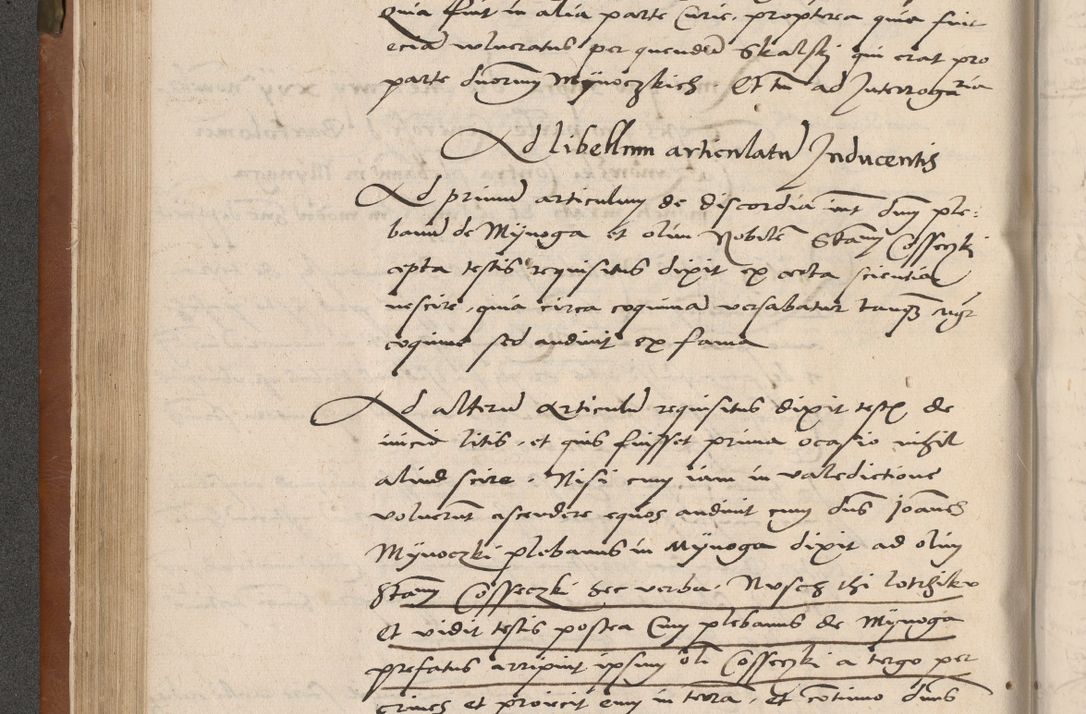 Quia fuit in alia parte Curie, propterea quia fuit
eciam vulneratus per quendam Skalski qui erat pro
parte duorum Mÿnoczkich. Et tm ad Interrogatoria
Ad libellum articulatum Inducentis
Ad primum articulum de discordia int dnm ple:
banum de Mÿnoga et olim Nobilem Stam Cosseczki
cepta testis requisitus dixit ex certa scientia
nescire, quia circa coquinam versabatur tanqz
coquine sed audivit ex fama
Ad alterum Articulum requisitus dixit testis de
inicio litis, et quis fuisset prima ocasio nihil
aliud scire. Nisi cum iam in valedictione
voluerunt ascendere equos audivit cum dns Joannes
Mÿnoczki plebanus in Mÿnoga dixit ad olim
Stam Cosseczki hec verba. Nusch thi lotrziku
Et vidit testis postea Cum plebanus de Mÿnoga
prefatus arripuit ipsum oli Cosseczki a tergo per
crines et proiecit eum in terram, et continuo dnus